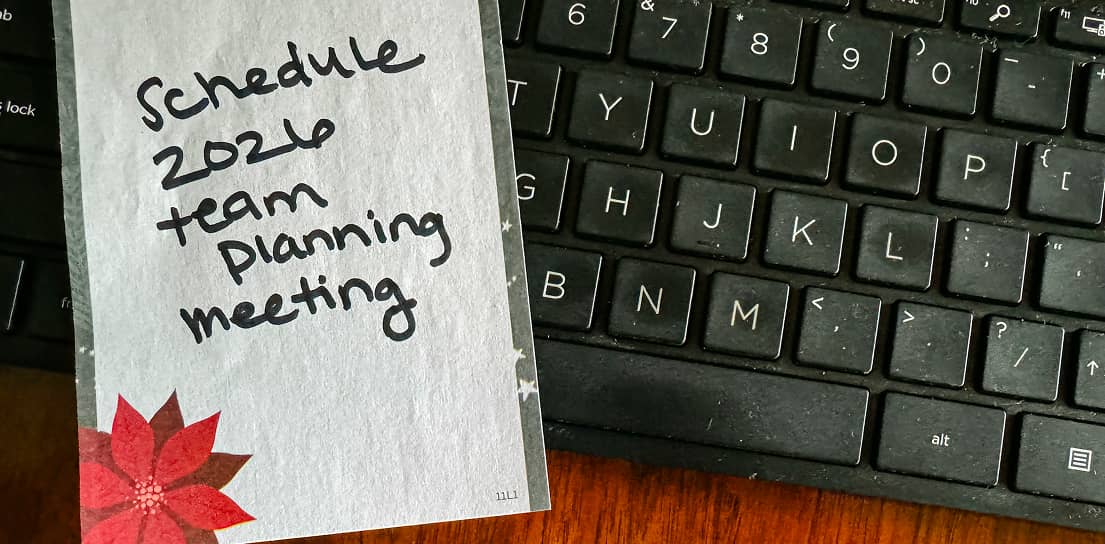 Schedule
2026
team
planning
meeting
11L1
ab
s lock
fn
6
& 7
* 8
( 9
) 0
_ -
+
f10
f11
T
Y
U
I
O
P
{ [
G
H
J
K
L
: ;
" '
B
N
M
< ,
> .
? /
↑
alt